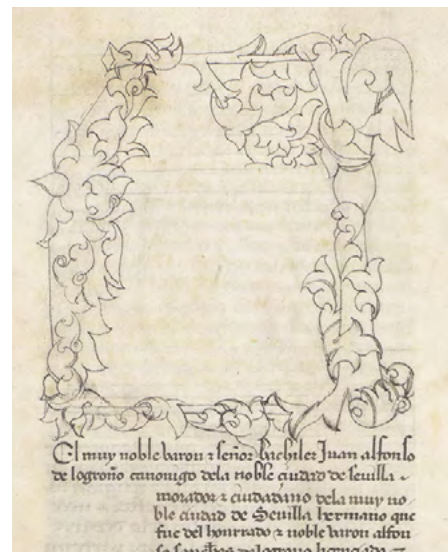 El muy noble baron ⁊ señor bachiler Juan alfonso
de logroño canonigo dela noble ciudad de seuilla
morador ⁊ ciudadano dela muy no
ble ciudad de Seuilla hermano que
fue del honrrado ⁊ noble baron alfon